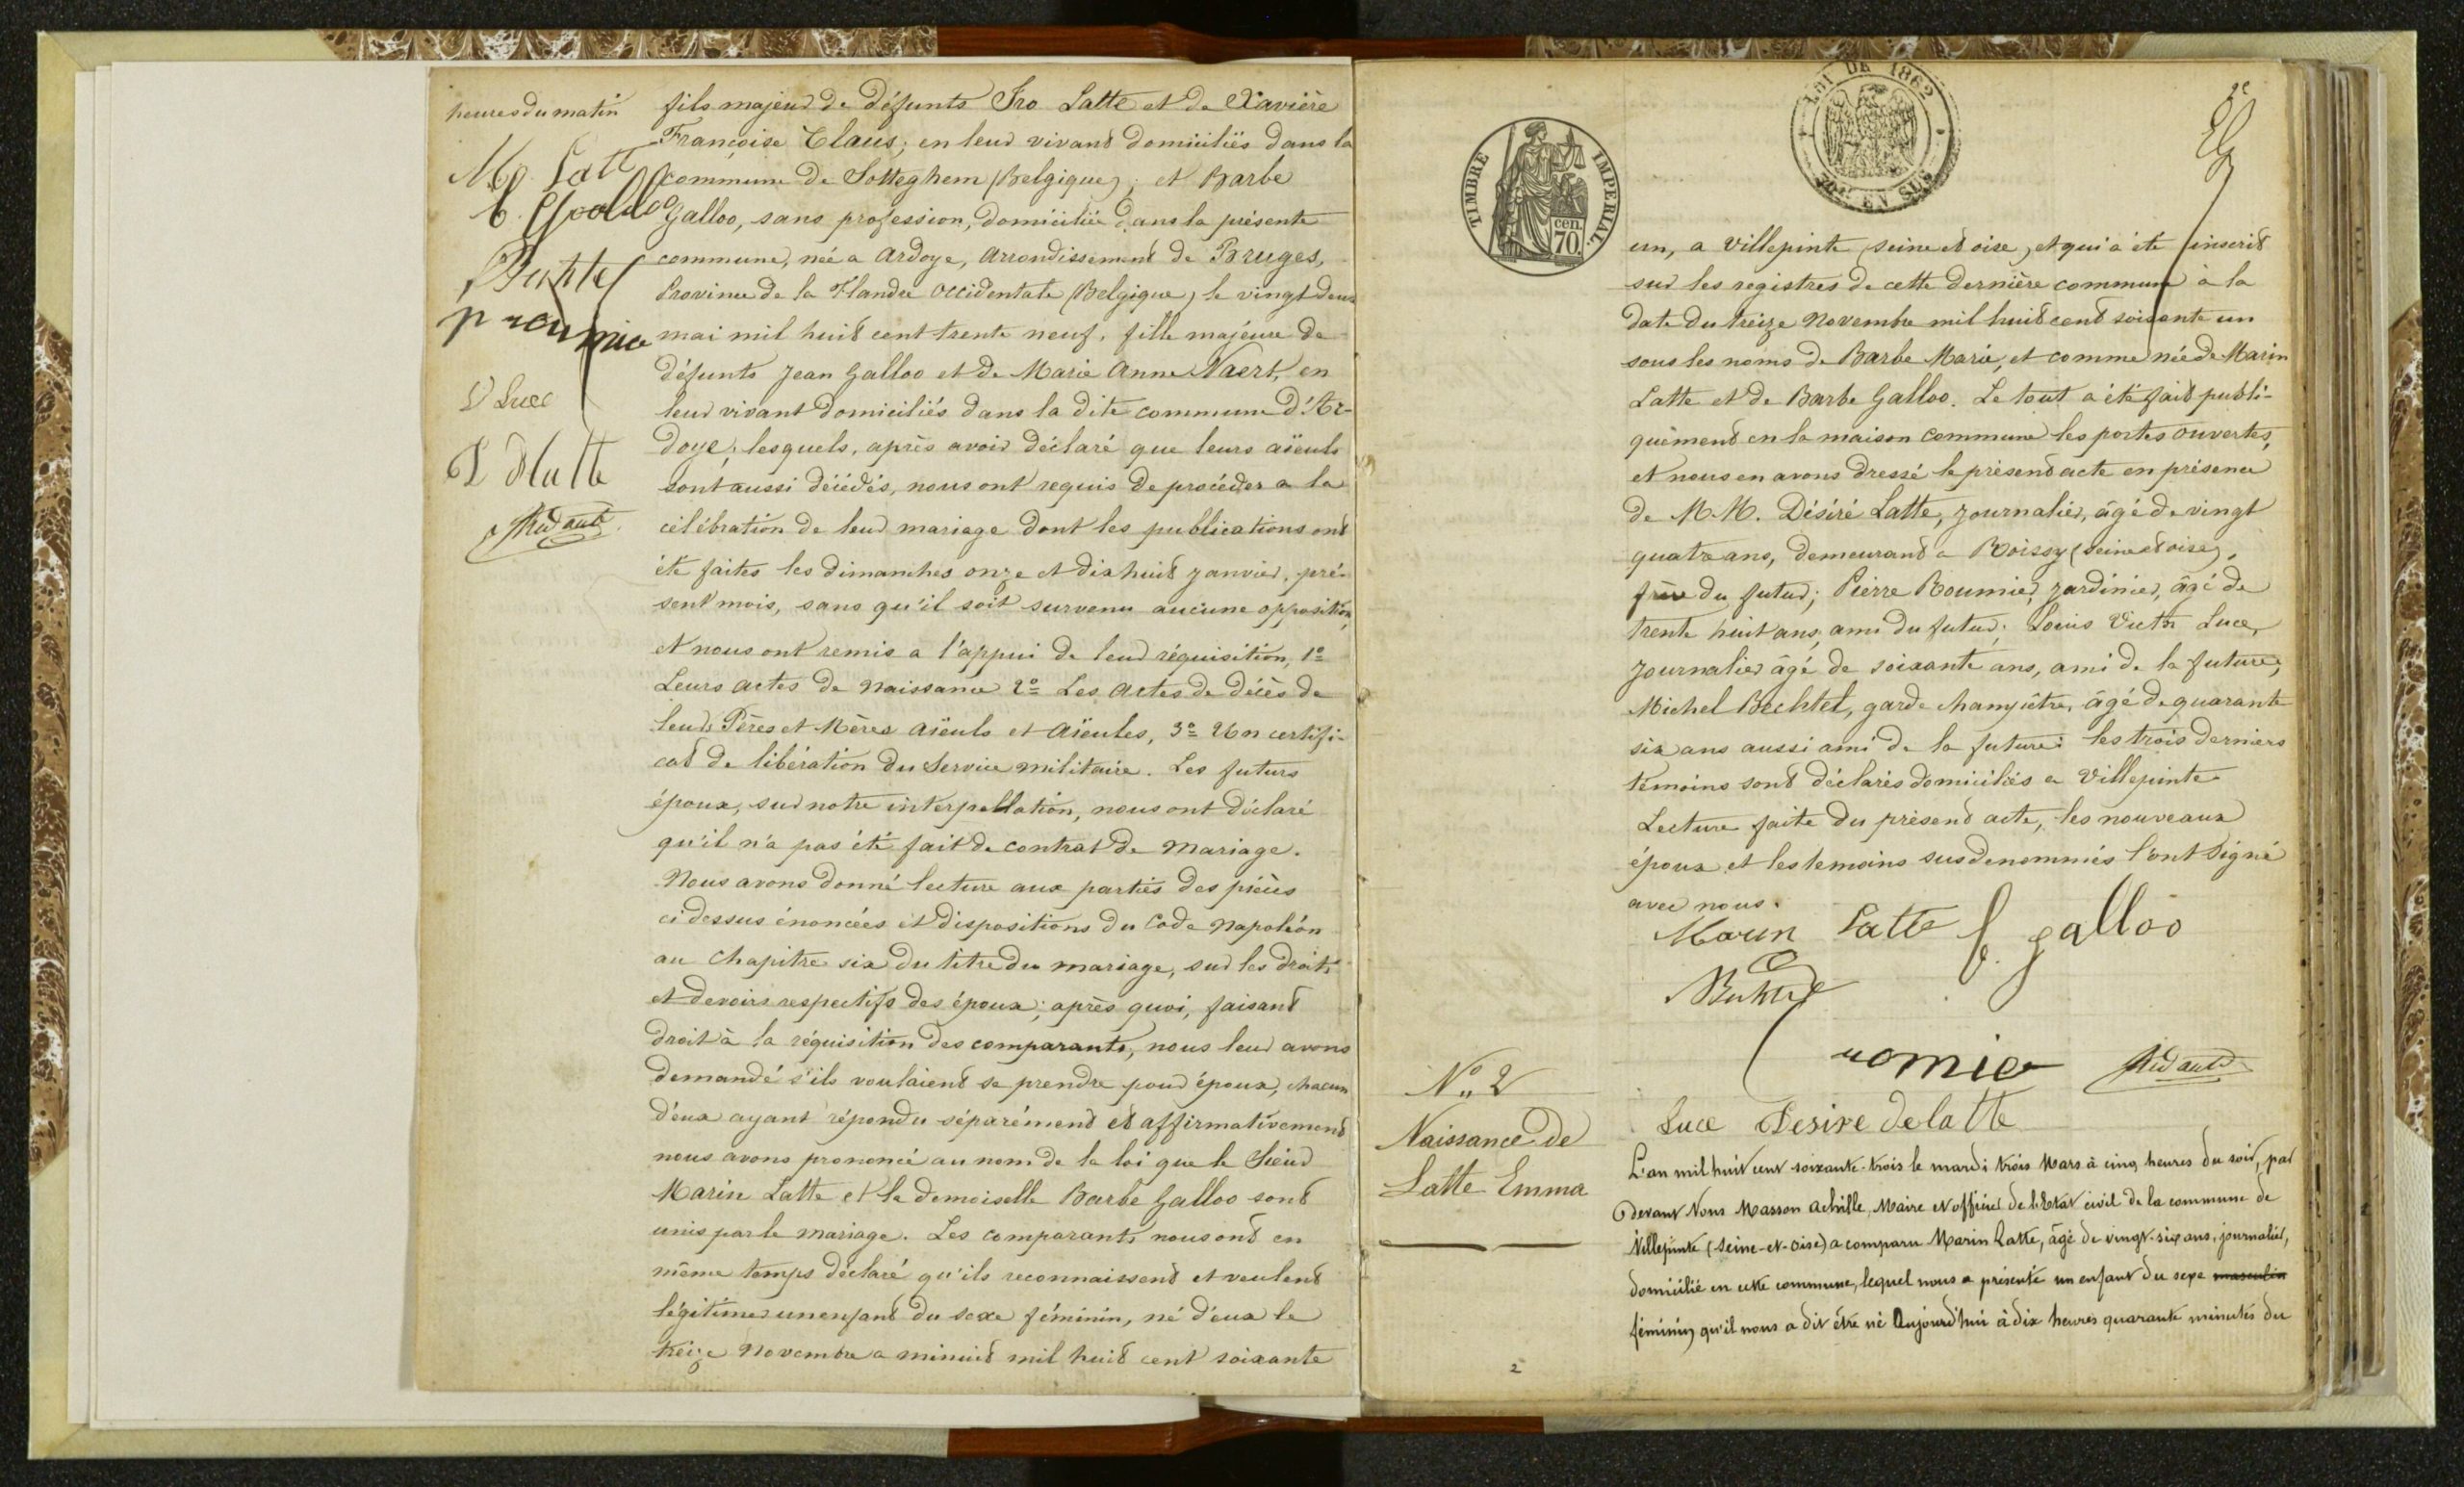 heures du matin
M. Latte
b. galloo
D Luce
D dlatte
fils majeur de défunts Iro Latte et de Xavière
Françoise Claus; en leur vivant domiciliés dans la
commune de Sotteghem (Belgique); et Barbe
Galloo, sans profession, domiciliée dans la présente
commune, née a Ardoye, arrondissement de Bruges,
Province de la Flandre Occidentale (Belgique) le vingt deux
mai mil huit cent trente neuf, fille majeure de
défunts Jean Galloo et de Marie Anne Naert, en
leur vivant domiciliés dans la dite commune d'Ar-
doye; lesquels, après avoir déclaré que leurs aïeuls
sont aussi décédés, nous ont requis de procéder a la
célébration de leur mariage dont les publications ont
été faites les dimanches onze et dix huit janvier, pré-
sent mois, sans qu'il soit survenu aucune opposition,
et nous ont remis a l'appui de leur réquisition, 1º
Leurs actes de naissance 2º Les actes de décès de
leurs Pères et Mères aïeuls et aïeules, 3º Un certifi-
cat de libération du Service militaire. Les futurs
époux, sur notre interpellation, nous ont déclaré
qu'il n'a pas été fait de contrat de mariage.
Nous avons donné lecture aux parties des pièces
ci dessus énoncées et dispositions du Code Napoléon
au Chapitre six du titre du mariage, sur les droits
et devoirs respectifs des époux; après quoi, faisant
droit à la réquisition des comparants, nous leur avons
demandé s'ils voulaient se prendre pour époux, chacun
d'eux ayant répondu séparément et affirmativement
nous avons prononcé au nom de la loi que le Sieur
Marin Latte et la demoiselle Barbe Galloo sont
unis par le mariage. Les comparants nous ont en
même temps déclaré qu'ils reconnaissent et veulent
légitimer un enfant du sexe féminin, né d'eux le
treize Novembre a minuit mil huit cent soixante
TIMBRE IMPERIAL
cen. 70.
LOI DE 1862
EN SUS
2e
un, a Villepinte (seine et oise), et qui a été inscrit
sur les registres de cette dernière commune à la
date du treize Novembre mil huit cent soixante un
sous les noms de Barbe Marie, et comme née de Marin
Latte et de Barbe Galloo. Le tout a été fait publi-
quement en la maison commune les portes ouvertes,
et nous en avons dressé le présent acte en présence
de M.M. Désiré Latte, journalier, âgé de vingt
quatre ans, demeurant a Roissy (seine et oise),
frère du futur; Pierre Roumier, jardinier, âgé de
trente huit ans, ami du futur; Louis Victor Luce,
journalier âgé de soixante ans, ami de la future;
Michel Bechtel, garde champêtre, âgé de quarante
six ans aussi ami de la future; les trois derniers
témoins sont déclarés domiciliés a Villepinte
Lecture faite du présent acte, les nouveaux
époux et les temoins susdenommés l'ont signé
avec nous.
Marin Latte b. galloo
Bechtel
romier
Luce Desire delatte
Nº 2
Naissance de
Latte Emma
L'an mil huit cent soixante-trois le mardi trois Mars à cinq heures du soir, par
devant Nous Masson Achille, Maire et officier de l'Etat civil de la commune de
Villepinte (Seine-et-Oise) a comparu Marin Latte, âgé de vingt-six ans, journalier,
domicilié en cette commune, lequel nous a présenté un enfant du sexe masculin
féminin qu'il nous a dit être né Aujourd'hui à dix heures quarante minutes du
2